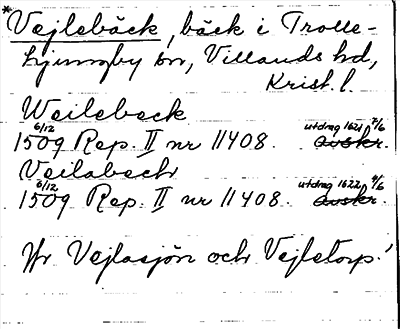 *Vejlebäck, bäck i Trolle-
Ljungby sn, Villands hd,
Krist. l.
Weilebeck
1509 6/12 Rep. II nr 11408. utdrag 1621 7/6 avskr.
Veilabech
1509 6/12 Rep. II nr 11408. utdrag 1622 4/6 avskr.
Jfr Vejlasjön och Vejletorp!